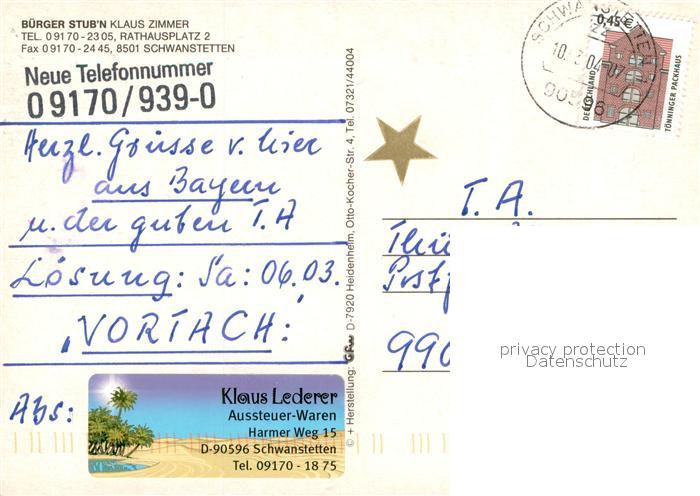 BÜRGER STUB'N KLAUS ZIMMER
TEL. 0 91 70 - 23 05, RATHAUSPLATZ 2
Fax 0 91 70 - 24 45, 8501 SCHWANSTETTEN
Neue Telefonnummer
0 9170/939-0
Herzl. Grüsse v. hier
aus Bayern
u. der guten T.A
Lösung: Sa: 06.03.
"VORTACH:"
Abs:
Klaus Lederer
Aussteuer-Waren
Harmer Weg 15
D-90596 Schwanstetten
Tel. 09170 - 18 75
© + Herstellung: D-7920 Heidenheim, Otto-Kocher-Str. 4, Tel. 07321/44004
SCHWANSTETTEN
10. 3. 04
90596
0,45 €
DEUTSCHLAND
TÖNNINGER PACKHAUS
T. A.
Thü
Postf
990
privacy protection
Datenschutz